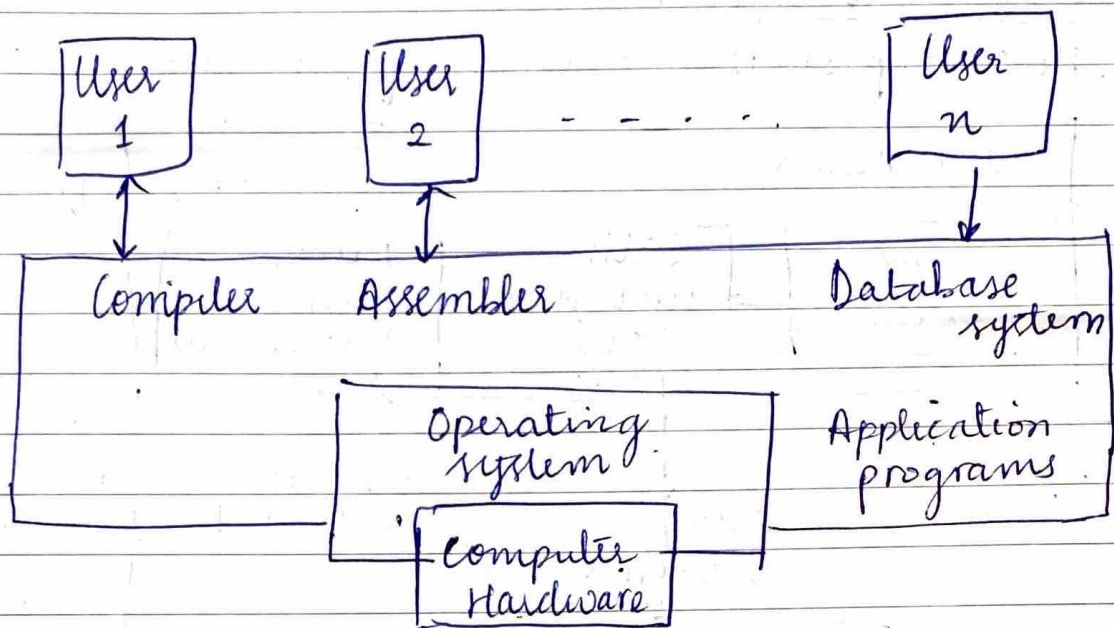 User
1
User
2
- - - - -
User
n
Compiler
Assembler
Database
system
Operating
system
Application
programs
Computer
Hardware